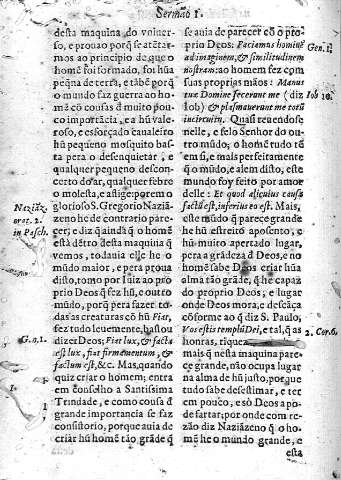 Sermão I.
desta maquina do vniuer-
so, e prouao porq̃ se atẽtar-
mos ao principio de que o
homẽ foi formado, foi hũa
peq̃na deterra, e tãbẽ porq̃
o mundo faz guerra ao ho-
mẽ cõ cousas d̃ muito pou-
co importãcia, e a hũ vale-
roso, e esforçado caualeiro
hũ pequeno mosquito bas-
ta pera o desenquietar, e
qualquer pequeno descon-
certo do ar, qualquer febre
o molesta, e aflige: porem o
glorioso S. Gregorio Naziã-
zeno he de contrario pare-
cer; e diz q̃ ainda q̃ o homẽ
està dẽtro desta maquina q̃
vemos, todauia elle he o
mũdo maior, e pera proua
disto, tomo por Iuiz ao pro
prio Deos q̃ fez hũ, e outro
mũdo, porq̃ pera fazer to-
das as creaturas cõ hũ Fiat,
fez tudo leuemente, bastou
dizer Deos; Fiat lux, & facta
est lux, fiat firmamentum, &
factum est, &c. Mas, quando
quiz criar o homem; entra
em conselho a Santissima
Trindade, e como cousa d̃
grande importancia se faz
consistorio, porque auia de
criar hũ homẽ tão grãde q̃
Naziãz.
orat. 2.
in Pasch.
G.n.1.
se auia de parecer cõ o pro
prio Deos. Faciamus hominẽ
ad imaginem, & similitudinem
nostram: ao homem fez com
suas proprias mãos: Manus
tuæ Domine fecerunt me (diz
Iob) & plasmauerunt me totũ
in circuitu. Quasi reuendose
nelle, e fello Senhor do ou
tro mũdo; o homẽ tudo tẽ
em si, e mais perfeitamente
q̃ o mũdo, e alem disto, este
mundo foy feito por amor
delle: Et quod alicuius causa
factũ est, inferius eo est. Mais,
este mũdo q̃ parece grande
he hũ estreito aposento, e
hũ muito apertado lugar,
pera a grãdeza d̃ Deos, e no
homẽ sabe Deos criar hũa
alma tão grãde, q̃ he capaz
do proprio Deos; e lugar
onde Deos mora, e descãça
cõforme ao q̃ diz S. Paulo,
Vos estis templũ Dei, e tal, q̃ as
honras, riquez
mais q̃ nesta maquina pare-
ce grãde, não ocupa lugar
na alma de hũ justo, porque
tudo sabe desestimar, e ter
em pouco, e sò Deos a po-
de fartar; por onde com re-
zão diz Naziãzeno q̃ o ho-
mẽ he o mundo grande, e
esta
Gen. 1.
Iob 10.
2. Cor. 6.